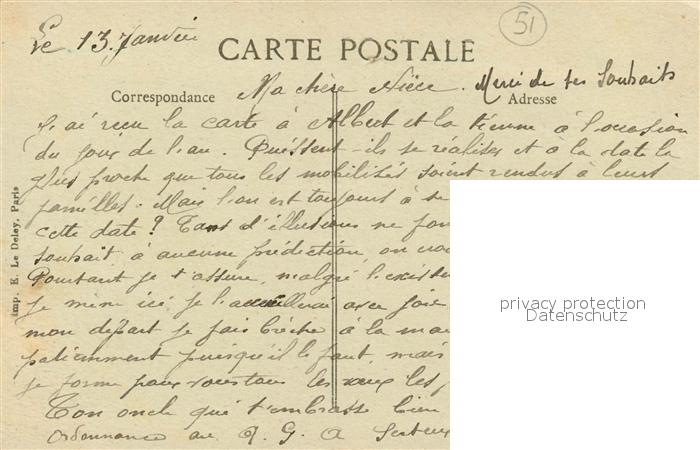 51
Le 13 Janvier
CARTE POSTALE
Ma chère Nièce. Merci de tes Souhaits
Correspondance
Adresse
J'ai reçu la carte à Albert et la tienne à l'occasion
du jour de l'an. Puissent-ils se réaliser et à la date la
plus proche que tous les mobilisés soient rendus à leurs
familles. Mais l'on est toujours à se
cette date? Tant d'illusions ne
souhait à aucune prédiction, on
Pourtant je t'assure, malgré
je mène ici je l'accueillerai avec joie
mon départ je fais brèche à la
patiemment puisqu'il le faut, mais
je forme pour vous tous les vœux les
Ton oncle qui t'embrasse bien
ordonnance au Q. G. A
Imp. E. Le Deley, Paris
privacy protection
Datenschutz